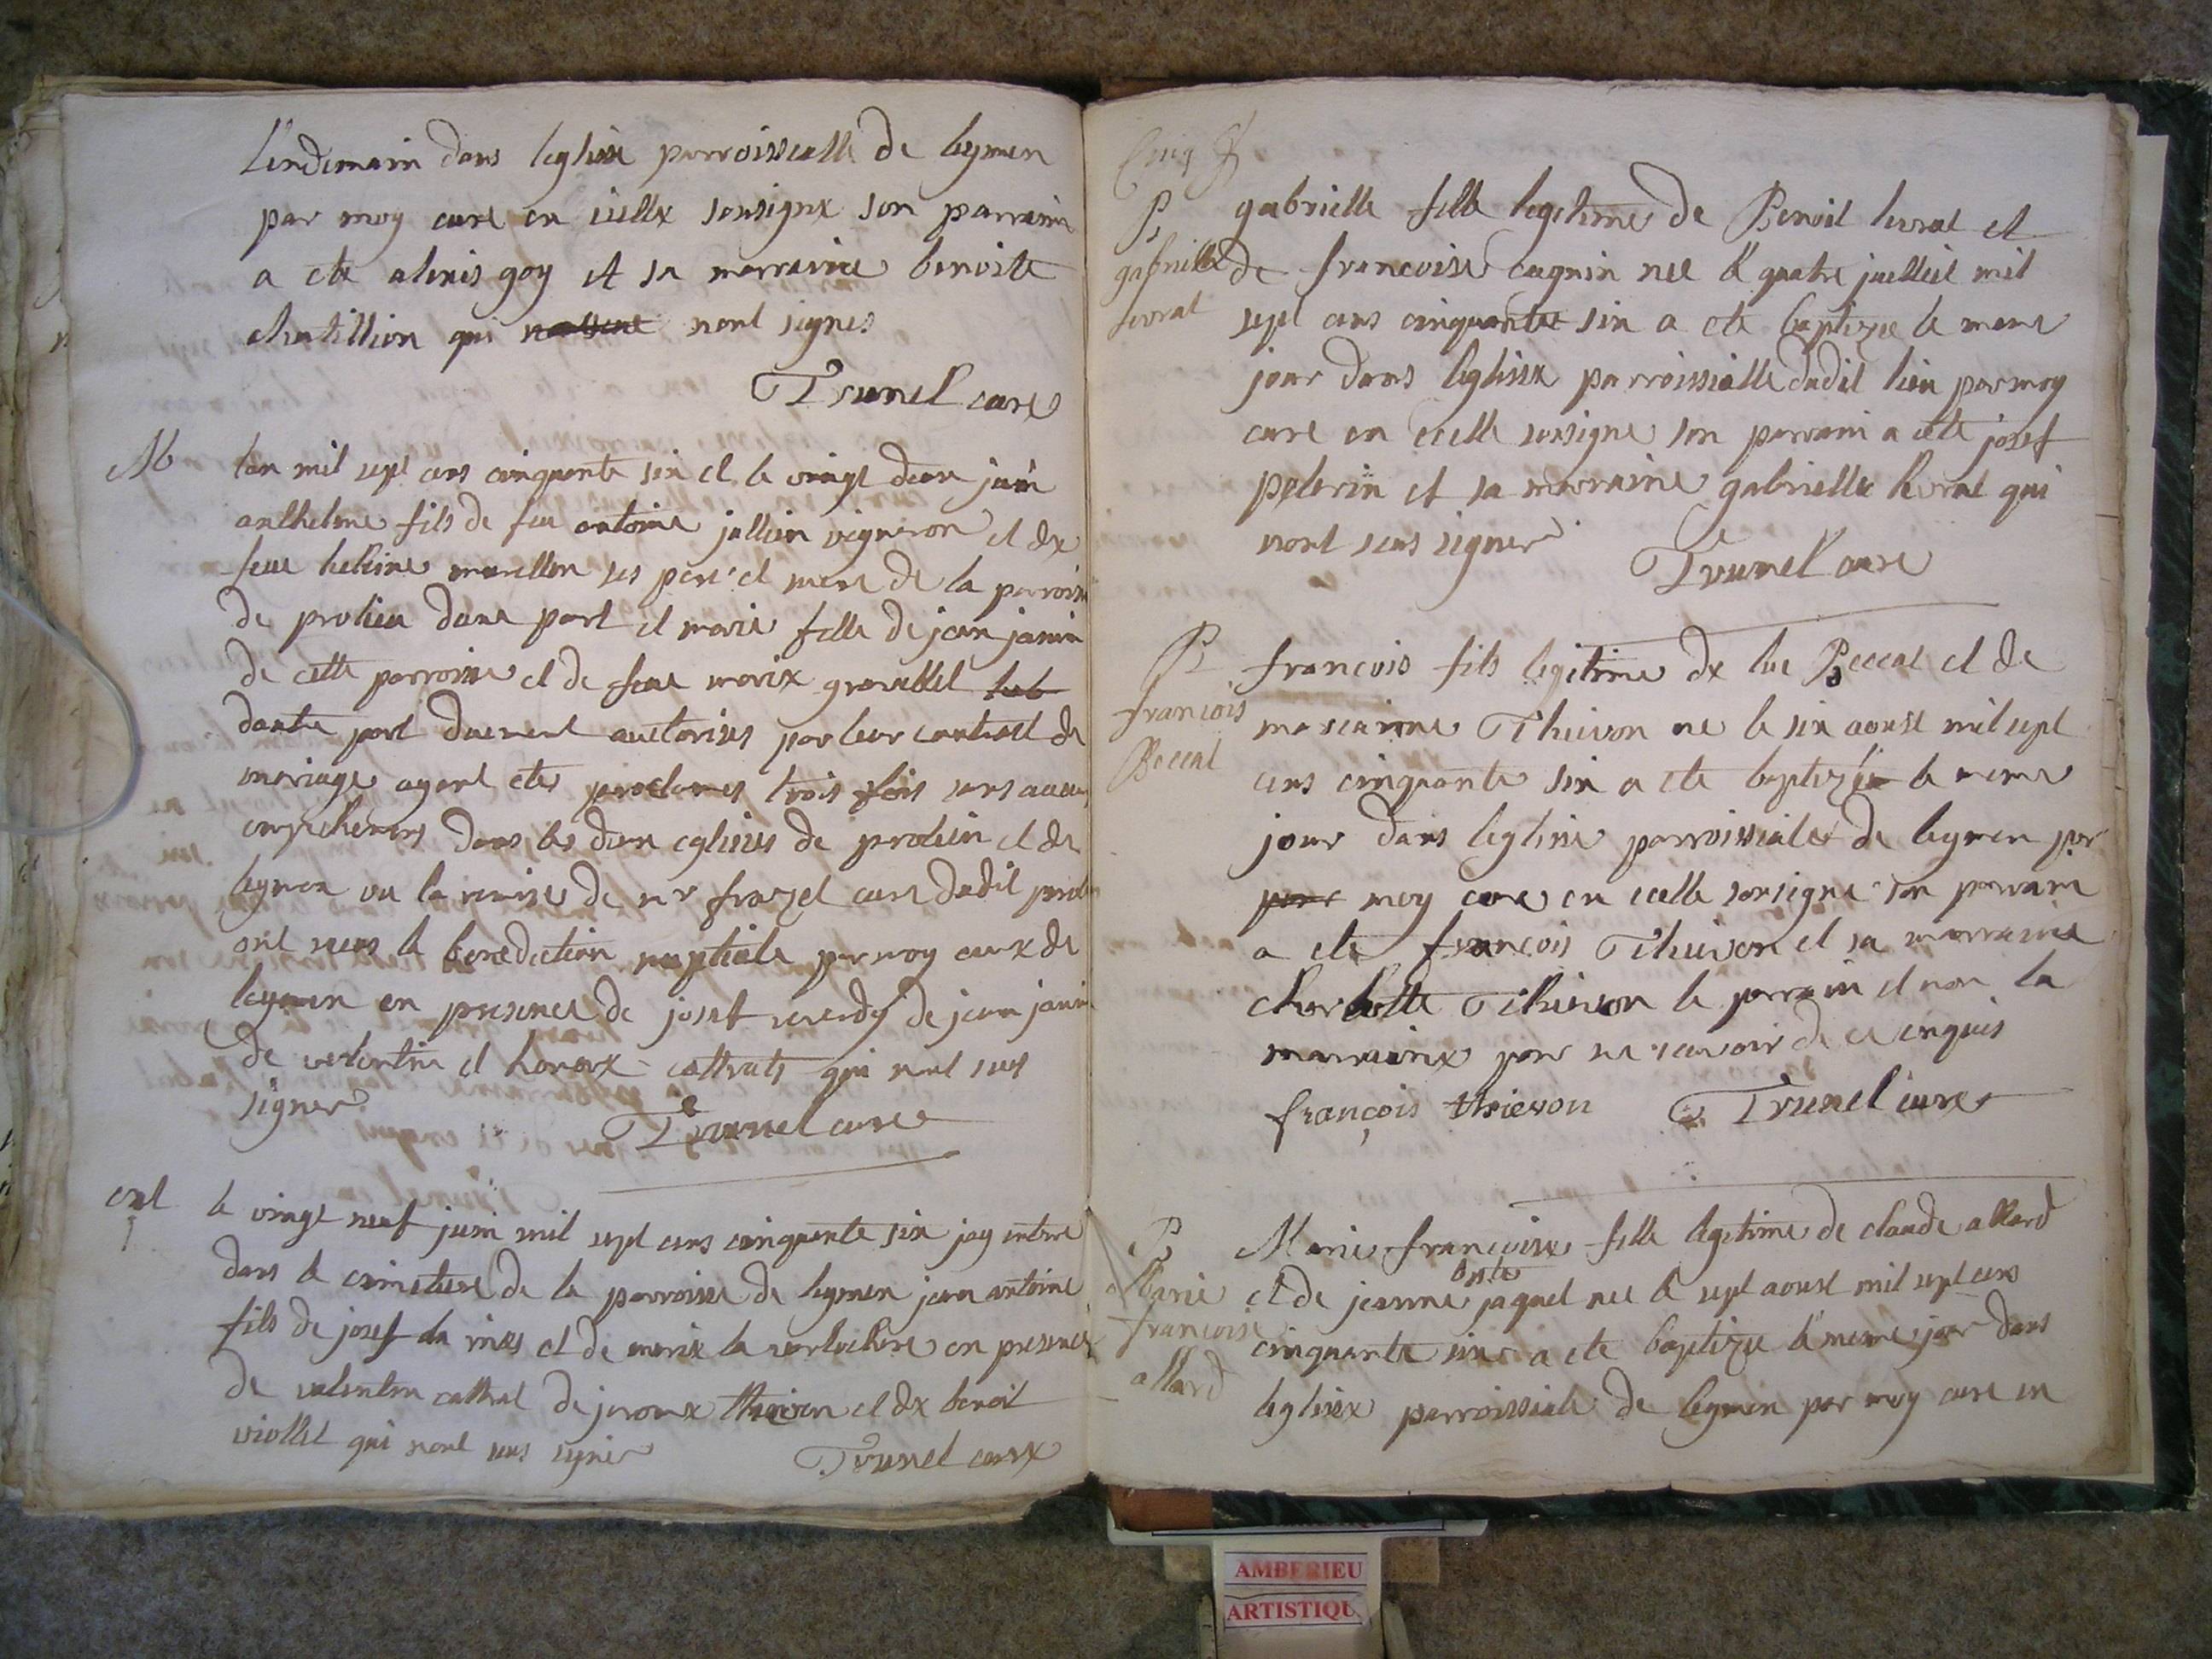 Lendemain dans leglise parroissialle de leymen
par moy curé en icelle sousigné son parrain
a eté alexis goy et sa marraine benoite
chatillion qui nont signes
Trunel curé
M
lan mil sept cens cinquante six et le vingt deux juin
anthelme fils de feu antoine jullien vigneron et de
feue helaine marellon ses pere et mere de la parroisse
de prolieu dune part et marie fille de jean janin
de cette parroisse et de feue marie
dautre part duement auctorises par leur contract de
mariage ayant etes proclames trois fois sans aucun
empechemens dans les deux eglises de prolieu et de
leymen vu la remise de mr frazel curé dudit
ont receus la benediction nuptiale par moy curé de
leymen en presence de josef reverdy de jean janin
de valentin et honoré cattrats qui nont sus
signer
Trunel curé
ent
le vingt neuf juin mil sept cens cinquante six jay enterré
dans le cimetiere de la parroisse de leymen jean antoine
fils de josef et de marie la en presence
de valentin cattrat de jerome thievon et de benoit
viollet qui nont sus signer
Trunel curé
B
gabrielle
livrat
gabrielle fille legitime de Benoit livrat et
de francoise cugnin nee le quatre juilliet mil
sept cens cinquante six a ete baptizée le meme
jour dans leglise parroissialle dudit lieu par moy
curé en icelle sousigne son parrain a eté josef
pelerin et sa marraine gabrielle livrat qui
nont seus signer
Trunel curé
B
francois
Beccat
francois fils legitime de luc Beccat et de
Thievon ne le six aoust mil sept
cens cinquante six a ete baptizé le meme
jour dans leglise parroissiale de leymen par
moy curé en icelle sousigne son parrain
a ete françois Thievon et sa marraine
charlotte Thievon le parrain et non la
marraine pour ne scavoir de ce enquis
françois thievon Trunel curé
B
Marie
francoise
allard
Marie francoise fille legitime de claude allard
et de jeanne jaquet nee le sept aoust mil sept cens
cinquante six a ete baptizée le meme jour dans
leglise parroissiale de leymen par moy curé en
AMBERIEU
ARTISTIQU